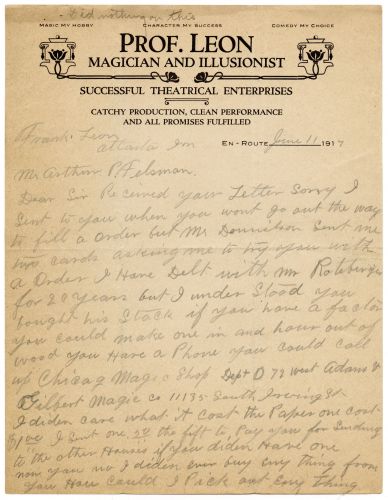 did nothing on this
Magic My Hobby
Character My Success
Comedy My Choice
Prof. Leon
Magician and Illusionist
Successful Theatrical Enterprises
Catchy Production, Clean Performance
and All Promises Fulfilled
Frank Leon
En-Route June 11 1917
Mr Arthur P. Felsman.
Dear Sir Received your Letter Sorry I
Sent to you when you wont go out the way
to fill a order but Mr Donnilson Sent me
two cards asking me to try you with
a Order I Have Delt with Mr Roteberger
for 20 years but I under Stood you
bought his Stock if you have a factory
you could make one in and hour out of
wood you Have a Phone you could call
up Chicag Magic Shop Dept D 72 West Adams
Gilbert Magic Co 11135 South Irving St
I diden care what it cost the Paper one cost
I Sent one the to Pay you for Sending
to the other Houses if you diden Have one
now you no I diden ever buy eny thing from
you How could I Pick out eny thing